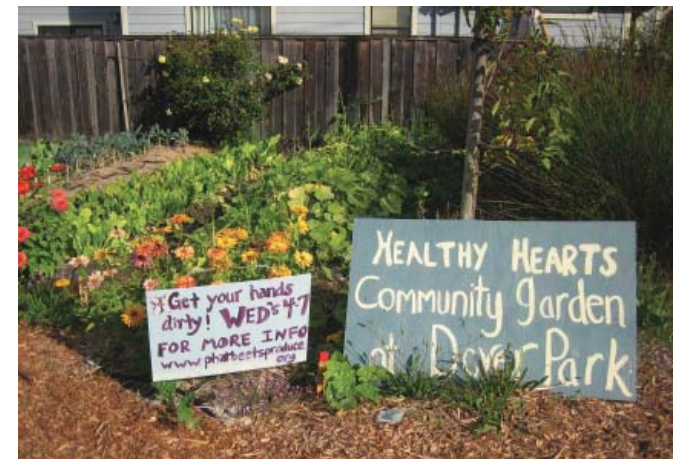 Get your hands
dirty! WED's 4-7
FOR MORE INFO
www.phatbeetsproduce
.org
HEALTHY HEARTS
Community garden
at Dover Park